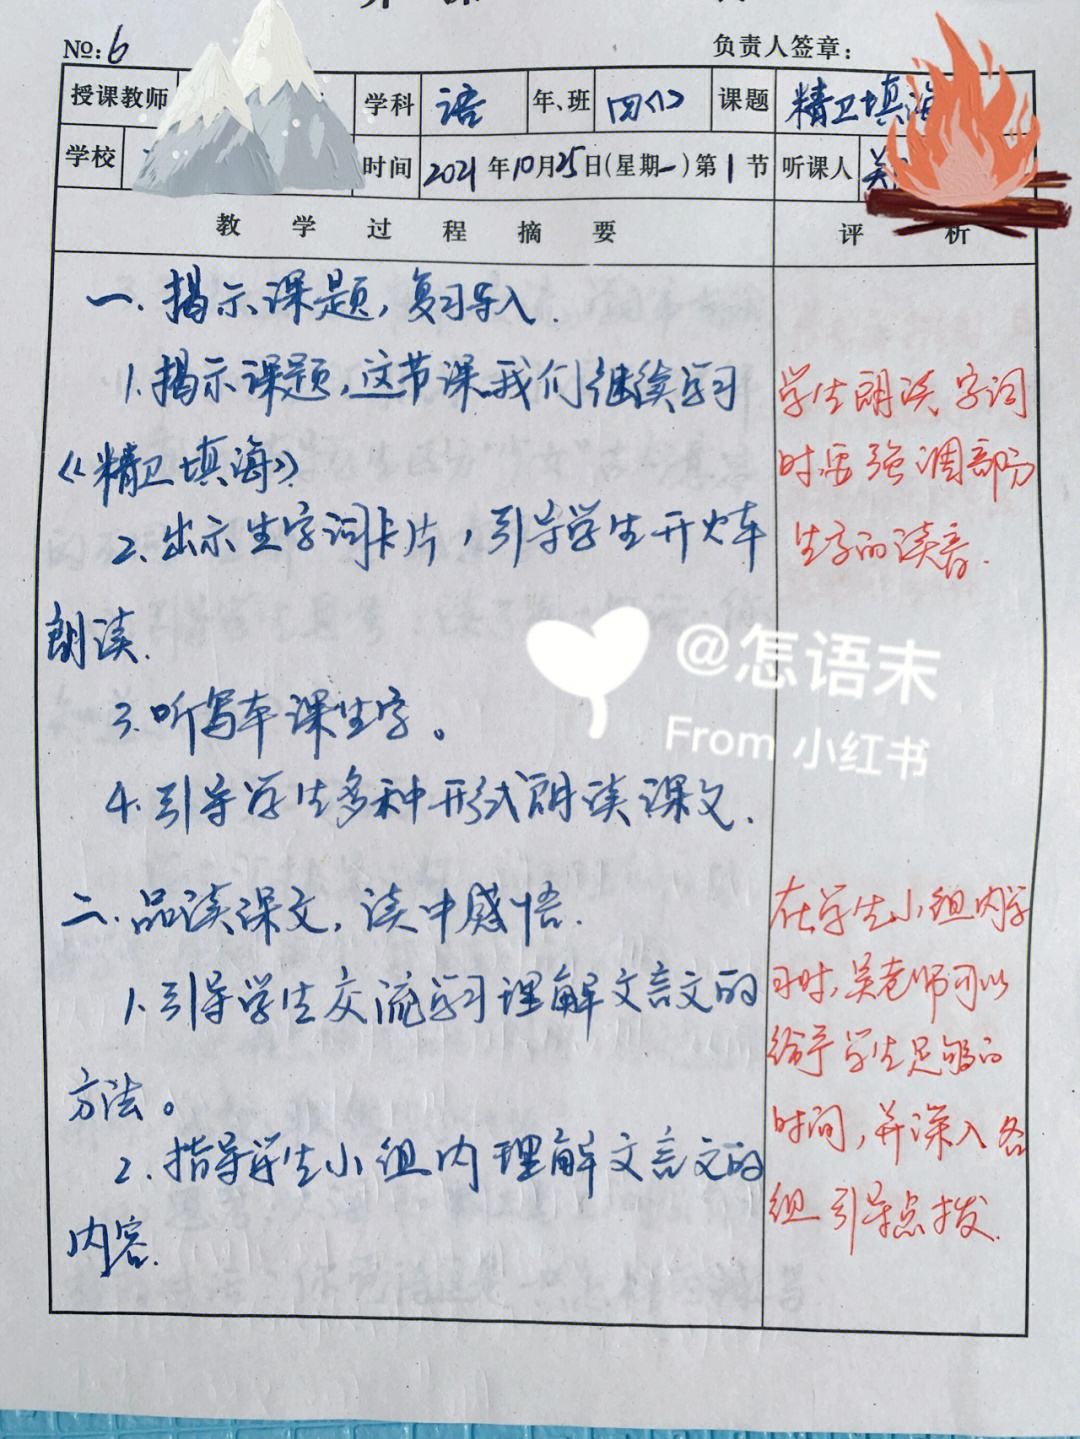 №:6 负责人签章:
授课教师 学科 语 年、班 四(1) 课题 精卫填海
学校 时间 2021年10月25日(星期一)第1节 听课人
教学过程摘要 评析
一、揭示课题,复习导入.
1.揭示课题,这节课我们继续学习
《精卫填海》
2.出示生字词卡片,引导学生开火车
朗读.
3.听写本课生字。
4.引导学生多种形式朗读课文.
二、品读课文,读中感悟.
1.引导学生交流学习理解文言文的
方法。
2.指导学生小组内理解文言文的
内容.
学生朗读字词
时要强调部分
生字的读音.
在学生小组内学
习时,吴老师可以
给予学生足够的
时间,并深入各
组引导点拨.
@怎语末
From 小红书